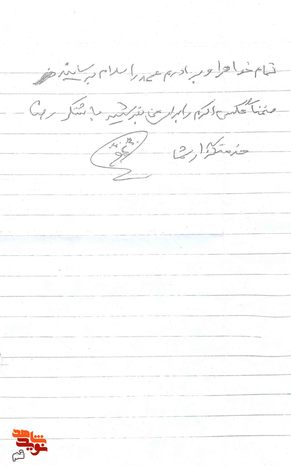 تمام خواهر و برادرم عمه را سلام برسانید
ضمناً عکس اکرم را برای من بفرستید با تشکر رضا
خدمتگزار شما
نوید شاهد
قم